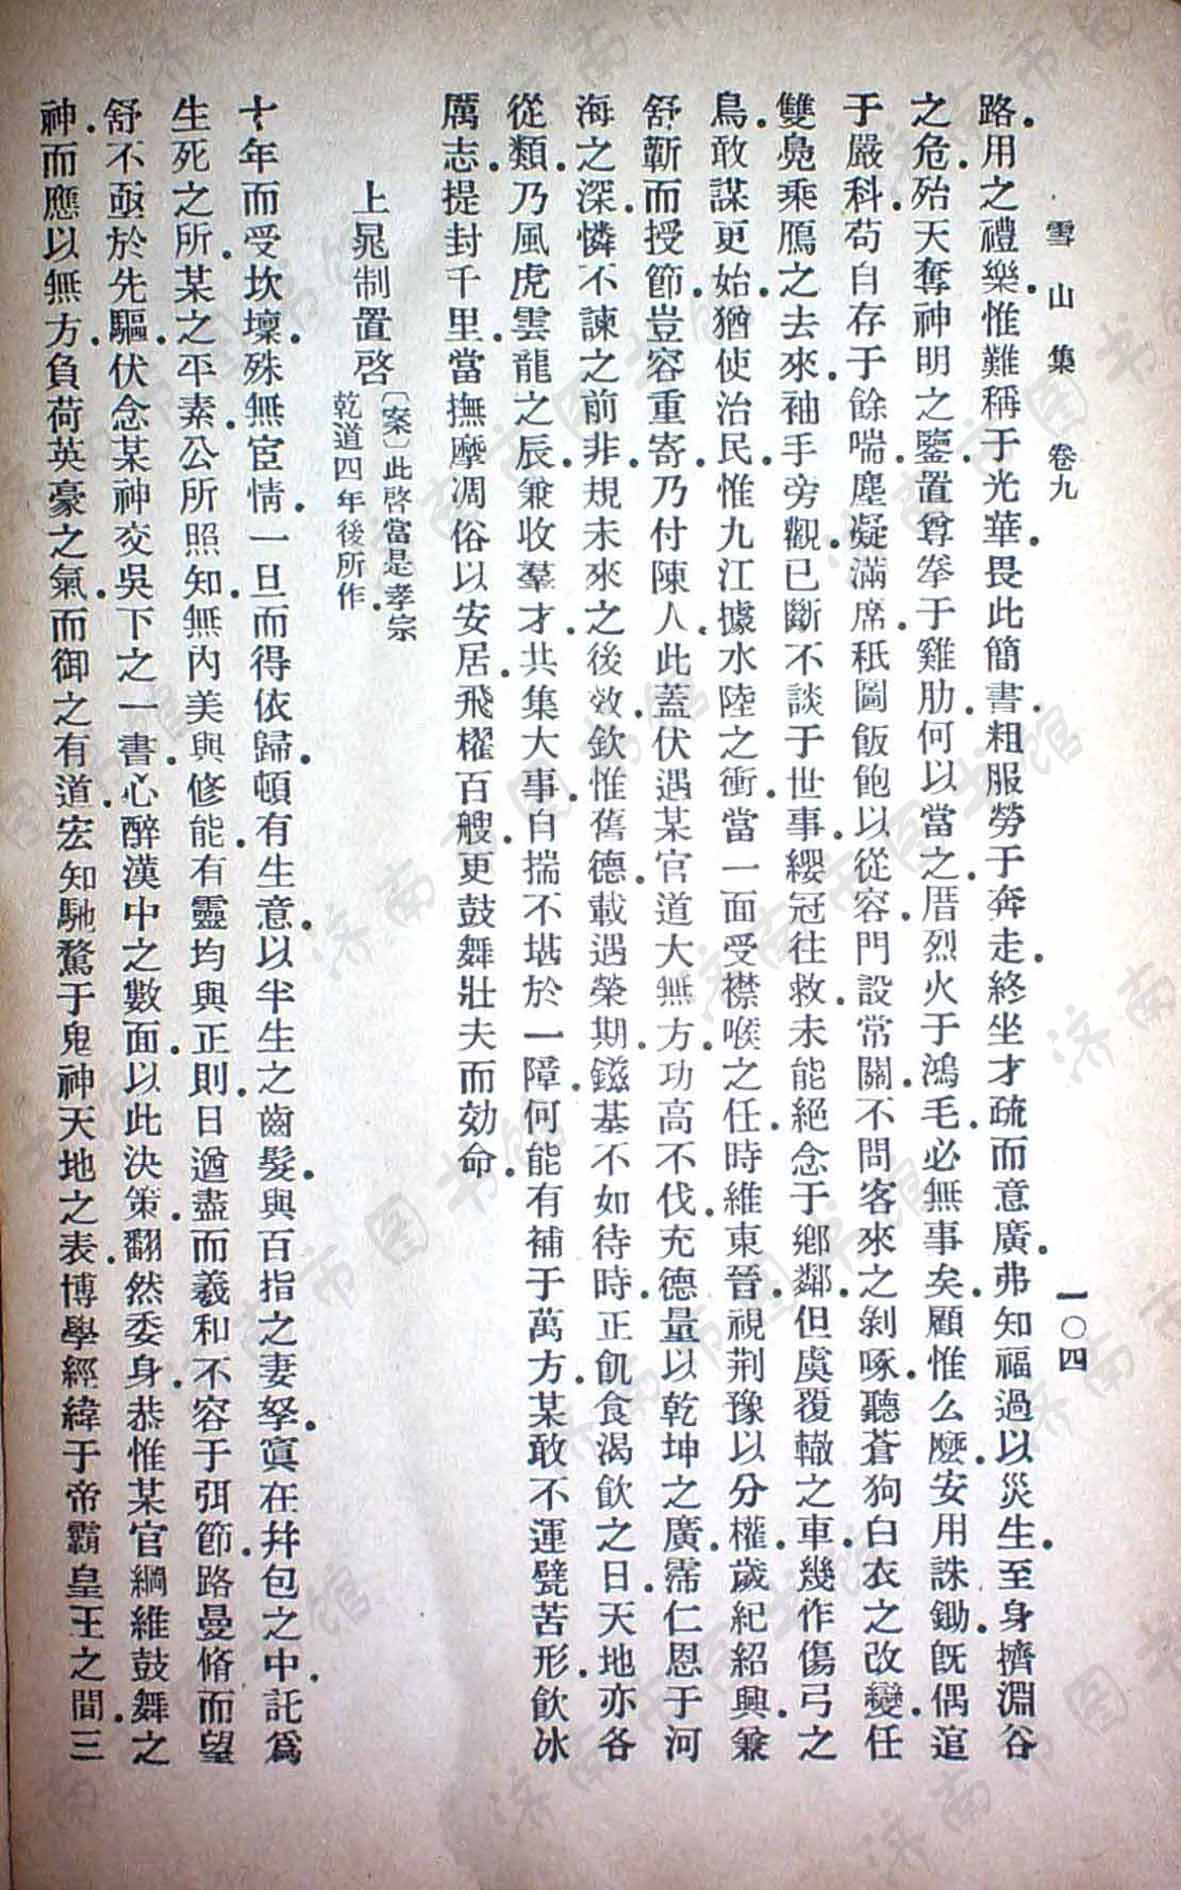 雪山集 卷九 一〇四
路.用之禮樂.惟難稱于光華.畏此簡書.粗服勞于奔走.終坐才疏而意廣.弗知福過以災生.至身擠淵谷
之危.殆天奪神明之鑒.置尊拳于雞肋.何以當之.厝烈火于鴻毛.必無事矣.顧惟么麼.安用誅鋤.旣偶逭
于嚴科.苟自存于餘喘.塵凝滿席.秖圖飯飽以從容.門設常關.不問客來之剝啄.聽蒼狗白衣之改變.任
雙鳧乘鴈之去來.袖手旁觀.已斷不談于世事.纓冠往救.未能絕念于鄕鄰.但虞覆轍之車.幾作傷弓之
鳥.敢謀更始.猶使治民.惟九江據水陸之衝.當一面受襟喉之任.時維東晉.視荆豫以分權.歲紀紹興.兼
舒蘄而授節.豈容重寄.乃付陳人.此蓋伏遇某官道大無方.功高不伐.充德量以乾坤之廣.霈仁恩于河
海之深.憐不諫之前非.規未來之後效.欽惟舊德.載遇榮期.鎡基不如待時.正飢食渴飲之日.天地亦各
從類.乃風虎雲龍之辰.兼收羣才.共集大事.自揣不堪於一障.何能有補于萬方.某敢不運甓苦形.飲冰
厲志.提封千里.當撫摩凋俗以安居.飛櫂百艘.更鼓舞壯夫而効命.
上晁制置啓
〔案〕此啓當是孝宗
乾道四年後所作.
十年而受坎壈.殊無宦情.一旦而得依歸.頓有生意.以半生之齒髮.與百指之妻孥.寘在幷包之中.託爲
生死之所.某之平素.公所照知.無內美與修能.有靈均與正則.日遒盡而羲和不容于弭節.路曼脩而望
舒不亟於先驅.伏念某神交吳下之一書.心醉漢中之數面.以此決策.翻然委身.恭惟某官綱維鼓舞之
神.而應以無方.負荷英豪之氣.而御之有道.宏知馳騖于鬼神天地之表.博學經緯于帝霸皇王之間.三